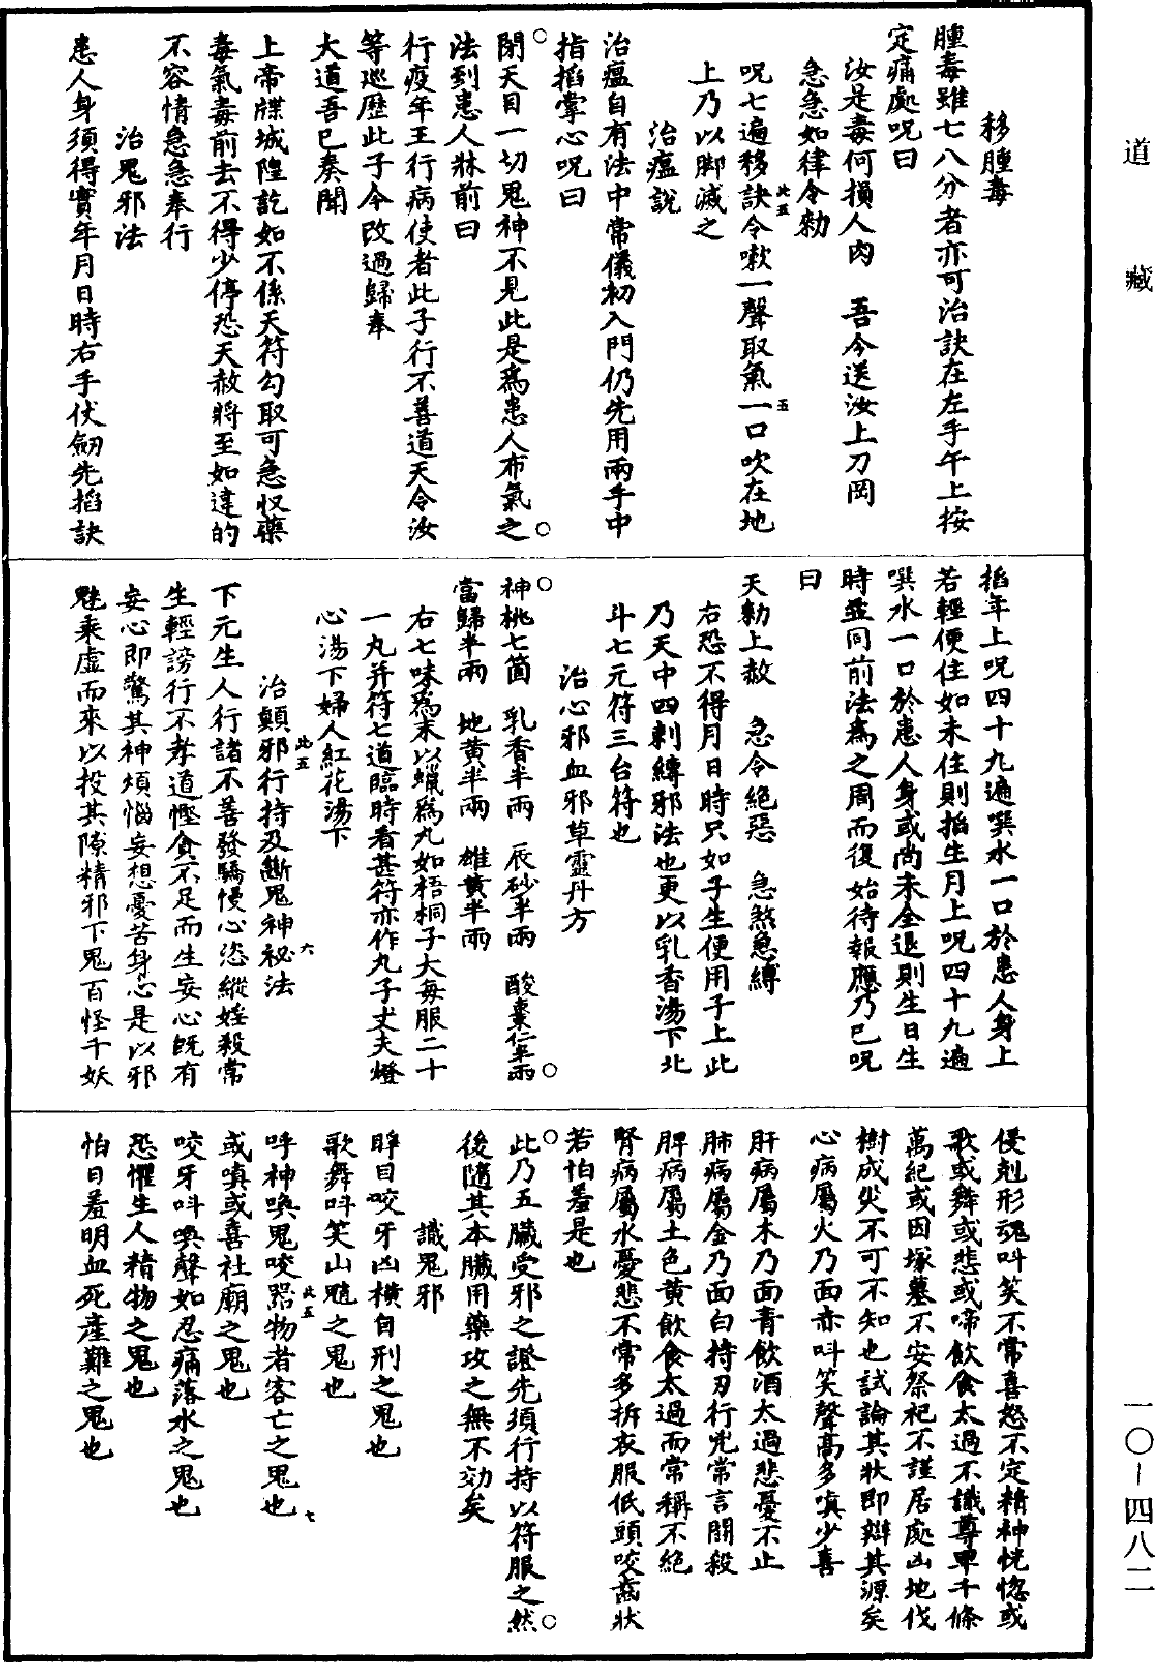 道藏
移腫毒
腫毒雖七八分者亦可治訣在左手午上按
定痛處呪曰
汝是毒何損人肉　吾今送汝上刀岡
急急如律令勑
呪七遍移訣令嗽一聲取氣一口吹在地
上乃以脚滅之
治瘟說
治瘟自有法中常儀初入門仍先用兩手中
指掐掌心呪曰
閉天目一切鬼神不見此是爲患人布氣之
法到患人牀前曰
行疫年王行病使者此子行不善道天令汝
等巡歷此子今改過歸奉
大道吾已奏聞
上帝牒城隍訖如不係天符勾取可急收藥
毒氣毒前去不得少停恐天赦將至如違的
不容情急急奉行
治鬼邪法
患人身須得實年月日時右手伏劒先掐訣
掐年上呪四十九遍噀水一口於患人身上
若輕便住如未住則掐生月上呪四十九遍
噀水一口於患人身或尚未全退則生日生
時並同前法爲之周而復始待報應乃已呪
曰
天勑上赦　急令絕惡　急煞急縛
右恐不得月日時只如子生便用子上此
乃天中四刺縛邪法也更以乳香湯下北
斗七元符三台符也
治心邪血邪草靈丹方
神桃七箇　乳香半兩　辰砂半兩　酸棗仁半兩
當歸半兩　地黃半兩　雄黃半兩
右七味爲末以蠟爲丸如梧桐子大每服二十
一丸并符七道臨時看甚符亦作丸子丈夫燈
心湯下婦人紅花湯下
治顛邪行持及斷鬼神祕法
下元生人行諸不善發驕慢心恣縱婬殺常
生輕謗行不孝道慳貪不足而生妄心既有
妄心即驚其神煩惱妄想憂苦身心是以邪
魅乘虛而來以投其隙精邪下鬼百怪千妖
侵剋形魂叫笑不常喜怒不定精神恍惚或
歌或舞或悲或啼飲食太過不識尊卑千條
萬紀或因塚墓不安祭祀不謹居處凶地伐
樹成災不可不知也試論其狀即辯其源矣
心病屬火乃面赤叫笑聲高多嗔少喜
肝病屬木乃面青飲酒太過悲憂不止
肺病屬金乃面白持刃行兇常言鬬殺
脾病屬土色黃飲食太過而常稱不絕
腎病屬水憂悲不常多拆衣服低頭咬齒狀
若怕羞是也
此乃五臟受邪之證先須行持以符服之然
後隨其本臟用藥攻之無不効矣
識鬼邪
睜目咬牙凶橫自刑之鬼也
歌舞叫笑山魈之鬼也
呼神喚鬼咬器物者客亡之鬼也
或嗔或喜社廟之鬼也
咬牙叫喚聲如忍痛落水之鬼也
恐懼生人精物之鬼也
怕日羞明血死產難之鬼也
一〇—四八二